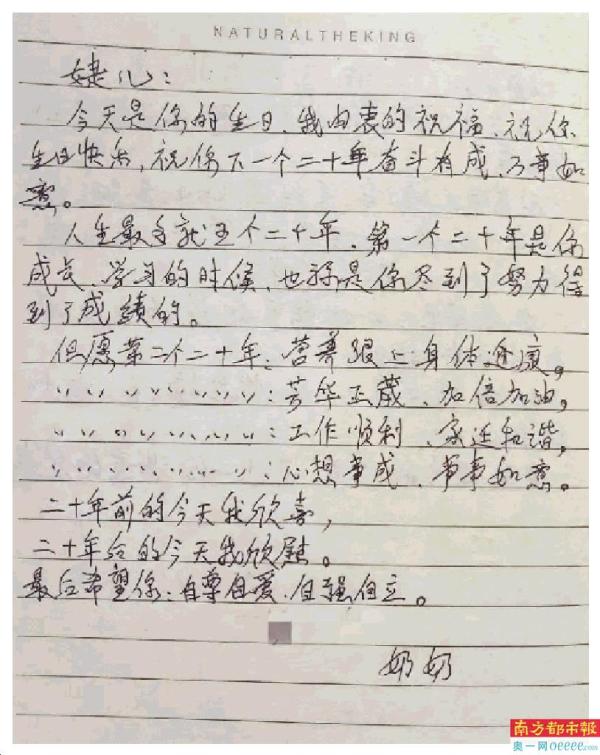 NATURALTHEKING
婕儿:
今天是你的生日、我由衷的祝福、祝你
生日快乐,祝你下一个二十年奋斗有成、万事如
意。
人生最多就五个二十年、第一个二十年是你
成长、学习的时候、也算是你尽到了努力得
到了成绩的。
但愿第二个二十年:营养跟上身体健康,
〃〃〃〃〃〃〃:芳华正茂、加倍加油,
〃〃〃〃〃〃〃:工作顺利、家庭和谐,
〃〃〃〃〃〃〃:心想事成、事事如意。
二十年前的今天我欣喜,
二十年后的今天我欣慰。
最后希望你:自尊自爱、自强自立。
奶奶
南方都市報
奥一网oeeee.com